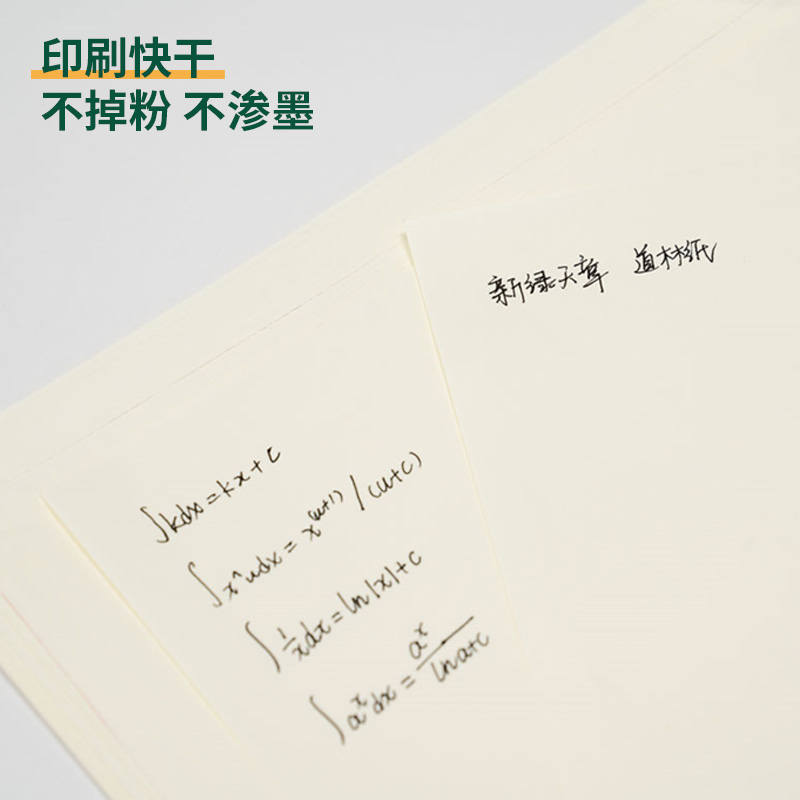 印刷快干
不掉粉 不渗墨
新绿天章 道林纸
∫kdx=kx+c
∫x^udx=x^(u+1)/(u+c)
∫1/x dx=ln|x|+c
∫a^x dx=a^x/lna+c